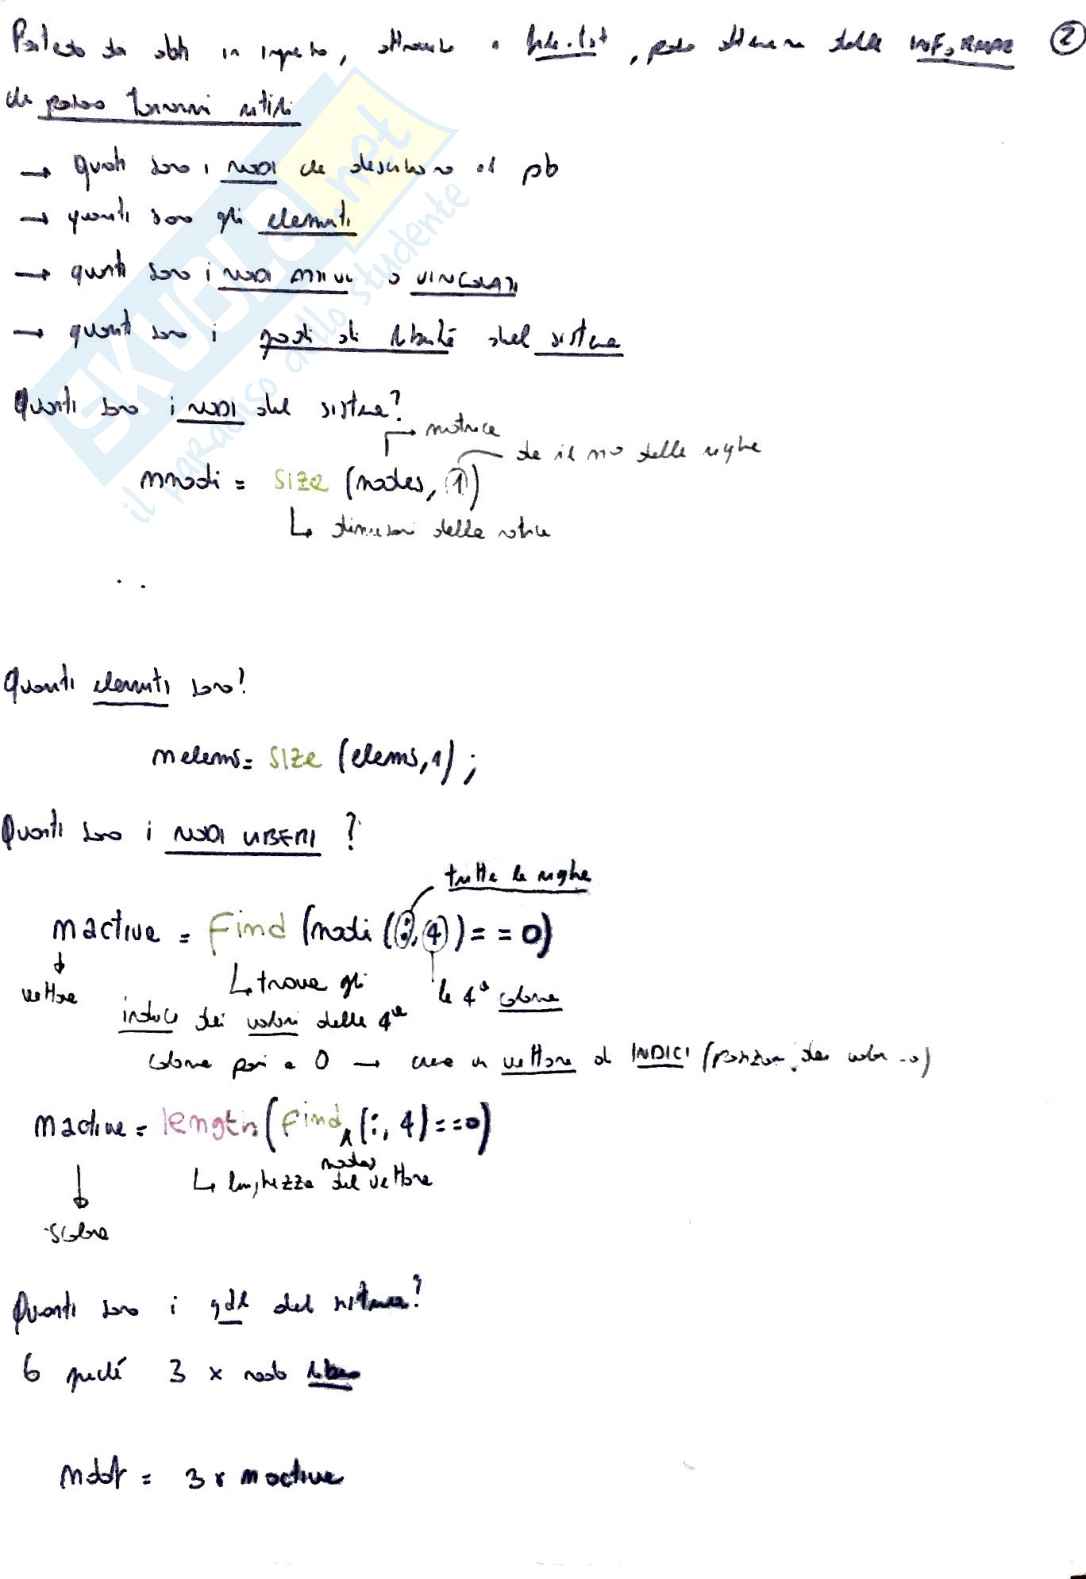 Partendo da dati in ingresso, attraverso i file.txt, posso ottenere delle INFORMAZ ②
che posso tenermi utili
→ quali sono i NODI che descrivono il pb
→ quanti sono gli elementi
→ quanti sono i NODI ATTIVI o VINCOLATI
→ quanti sono i gradi di libertà del sistema
Quanti sono i NODI del sistema?
→ matrice
da il no delle righe
nnodi = size (nodes, 1)
↳ dimensioni della matrice
. .
Quanti elementi sono?
nelems= size (elems,1) ;
Quanti sono i NODI LIBERI ?
tutte le righe
nactive = Find (nodi (:,4))==0)
vettore
↳ trova gli
la 4ª colonna
indici dei valori della 4ª
colonna pari a 0 → crea un vettore di INDICI (posizion. dei valori =0)
nactive = length (find (:, 4)==0)
nodes
↳ lunghezza del vettore
scalare
Quanti sono i gdl del sistema?
6 perché 3 x nodo libero
ndof = 3 x nactive
SKUOLA.net
il paradiso dello studente